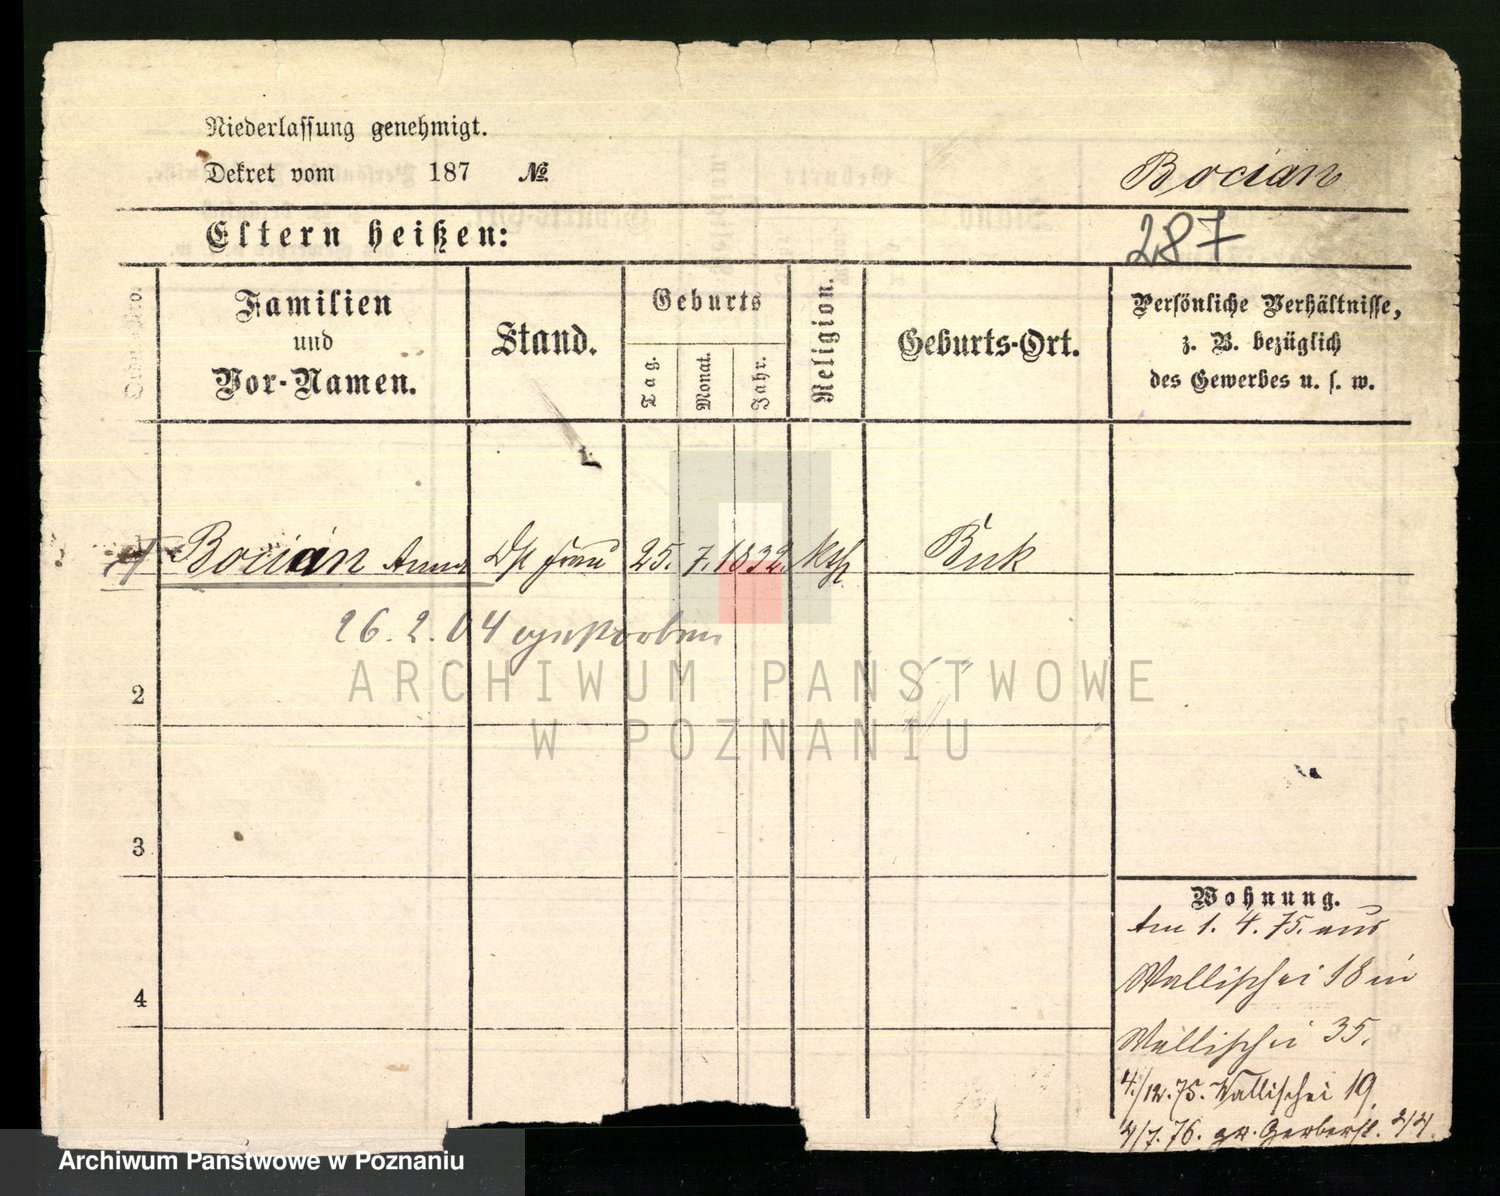 Niederlassung genehmigt.
Dekret vom 187 №
Bocian
Eltern heißen:
287
Familien
und
Vor-Namen.
Stand.
Geburts
Tag.
Monat.
Jahr.
Religion.
Geburts-Ort.
Persönliche Verhältnisse,
z. B. bezüglich
des Gewerbes u. s. w.
1 Bocian Anna Frau 25. 7. 1832. kth Buk
26. 2. 04
2
3
4
Wohnung.
Am 1. 4. 75. aus
Wallischei 18 in
Wallischei 35.
4/12. 75. Wallischei 19
4/7. 76. gr. Gerberst.
ARCHIWUM PAŃSTWOWE
W POZNANIU
Archiwum Państwowe w Poznaniu